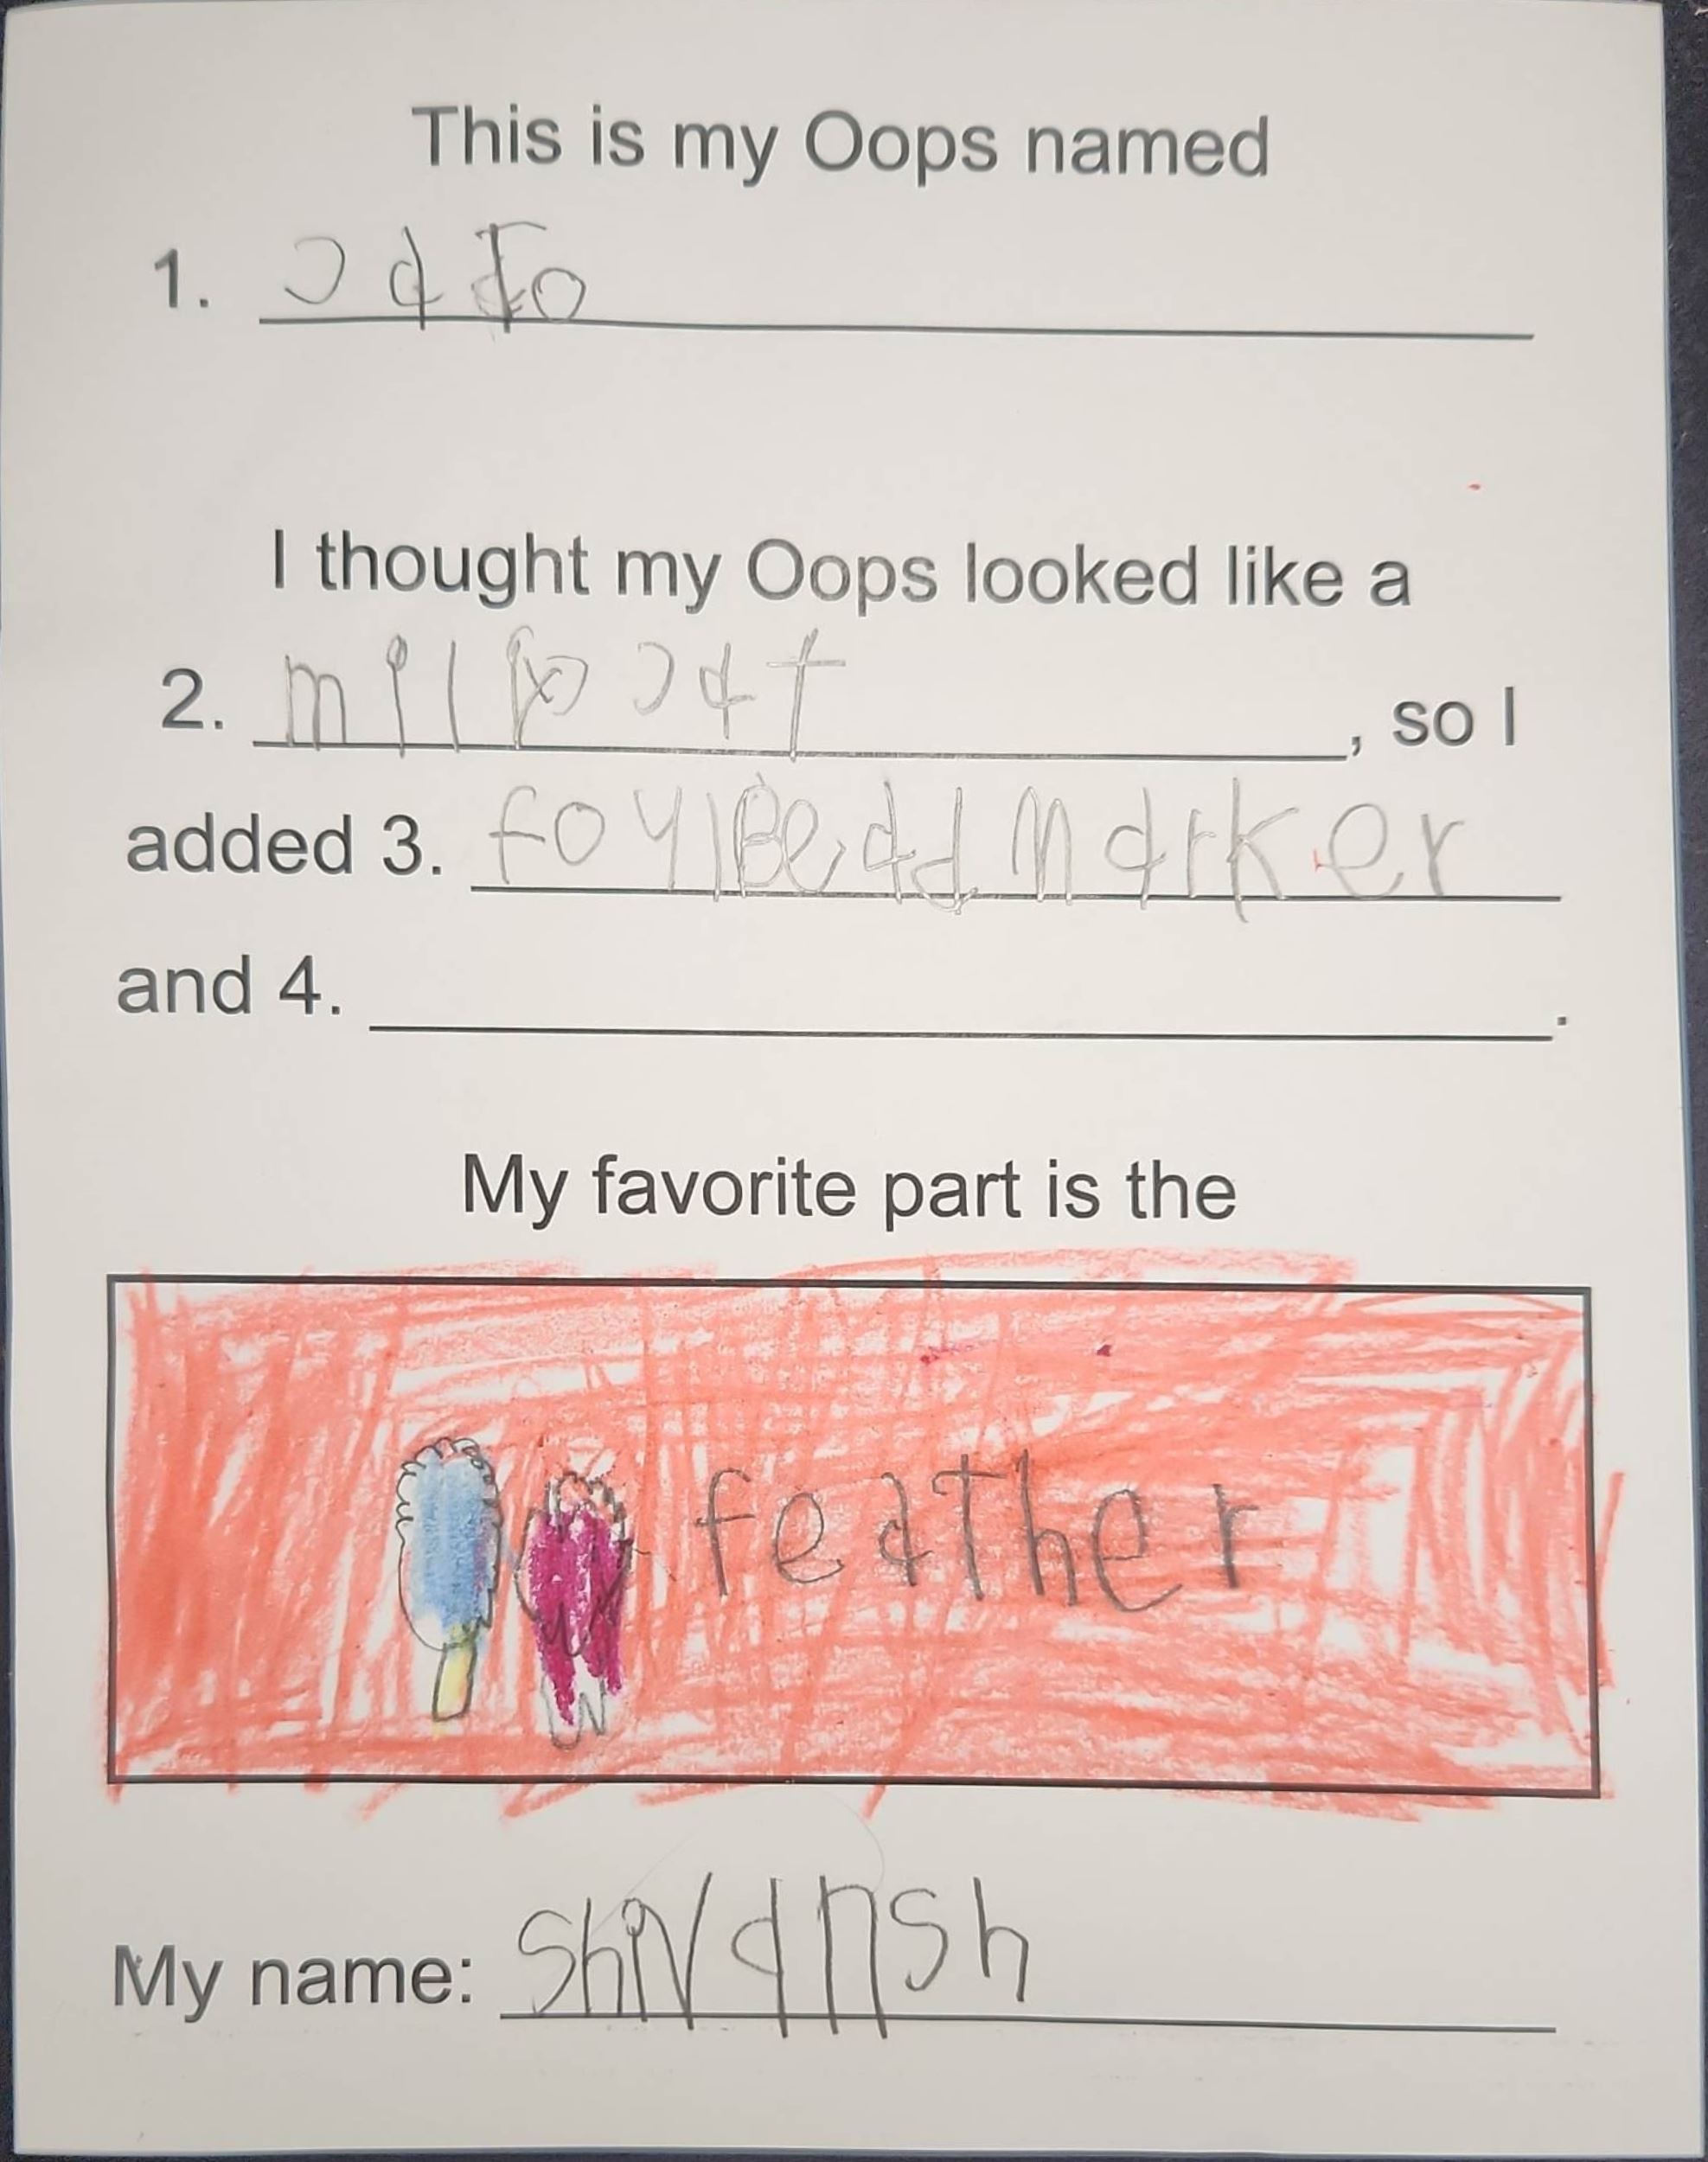 This is my Oops named
1.
I thought my Oops looked like a
2. , so I
added 3. foyl Bead marker
and 4. .
My favorite part is the
feather
My name: Shivansh